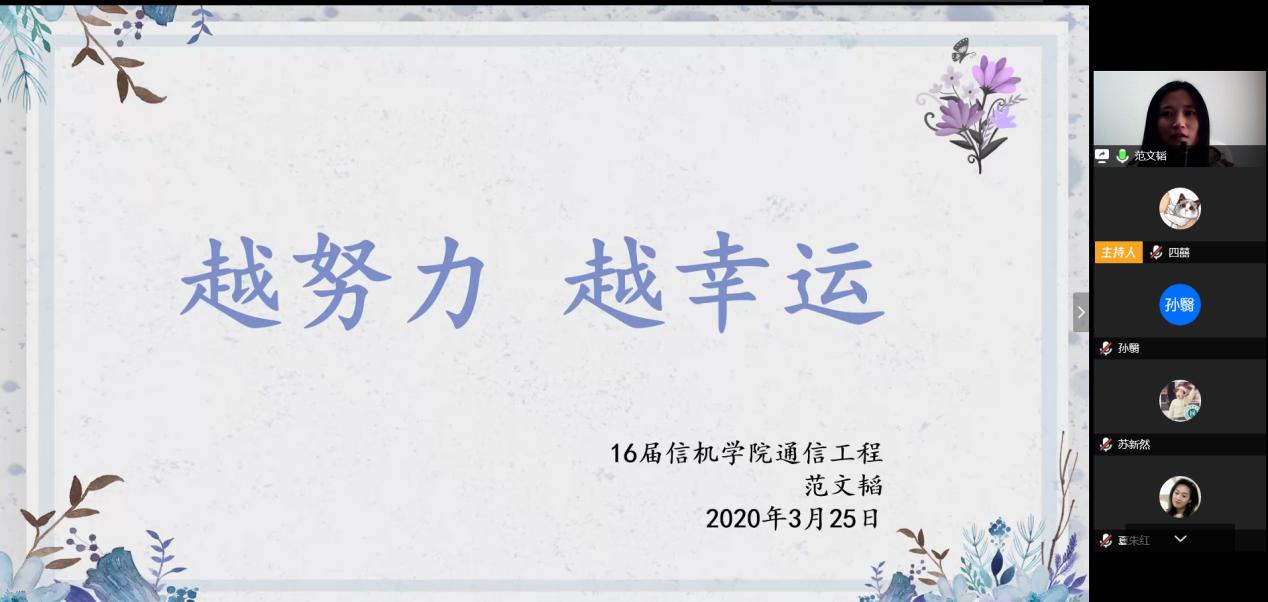 越努力 越幸运
16届信机学院通信工程
范文韬
2020年3月25日
范文韬
主持人 四囍
孙翳
孙翳
苏新然
朱红